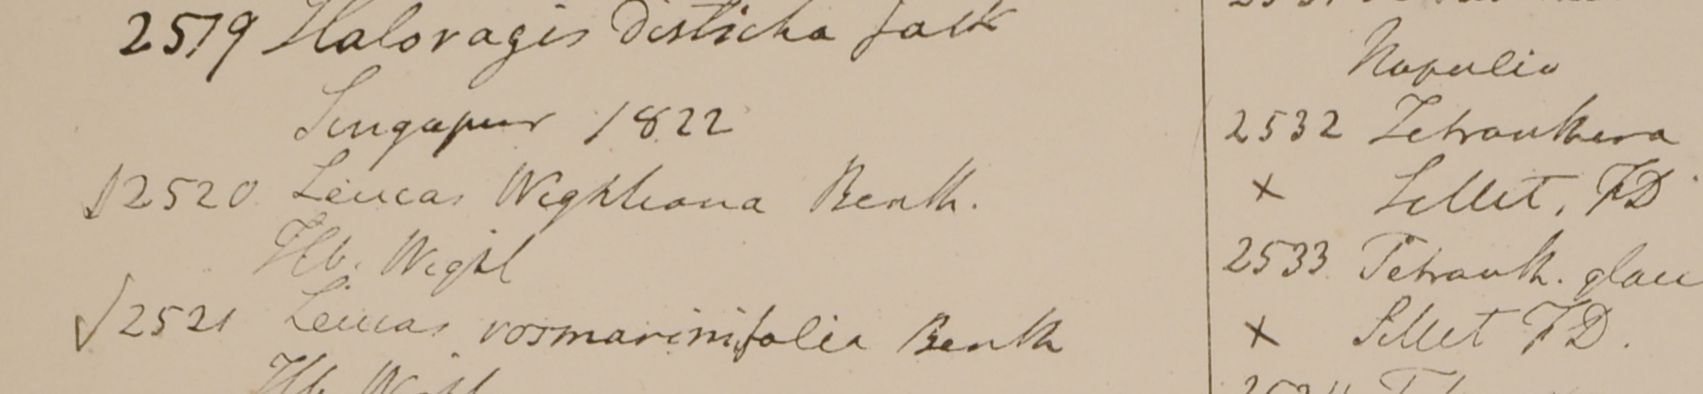 2519 Haloragis disticha Jack
Singapur 1822
√2520 Leucas Wightiana Benth.
Hb. Wight
√2521 Leucas rosmarinifolia Benth
Hb. Wight
Napalia
2532 Tetranthera
x Sillet, FD
2533 Tetranth. glau
x Sillet FD.